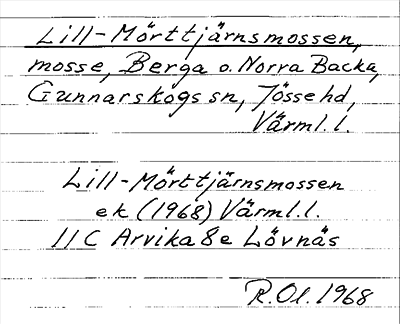 Lill-Mörttjärnsmossen,
mosse, Berga o. Norra Backa,
Gunnarskogs sn, Jösse hd,
Värml. l.
Lill-Mörttjärnsmossen
ek (1968) Värml. l.
11 C Arvika 8 e Lövnäs
R. Ol. 1968